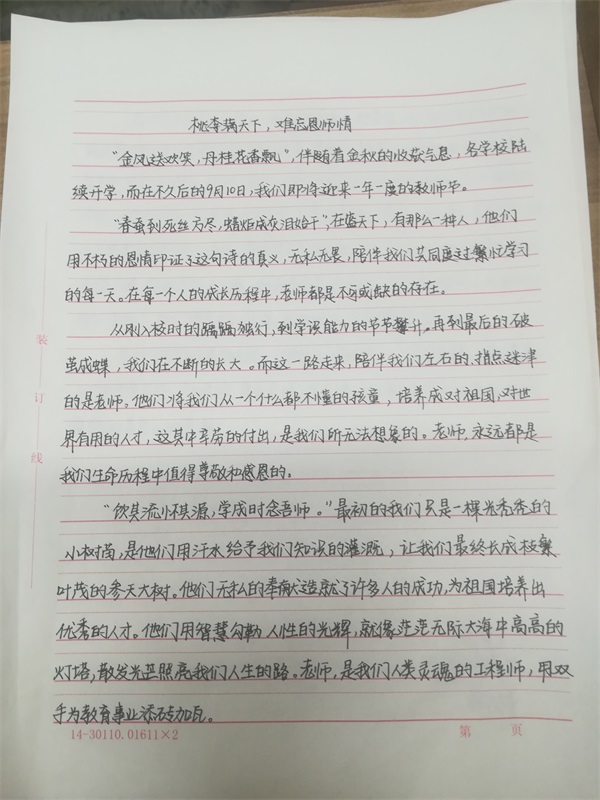 桃李满天下，难忘恩师情
“金风送欢笑，丹桂花香飘”，伴随着金秋的收获气息，各学校陆
续开学，而在不久后的9月10日，我们即将迎来一年一度的教师节。
“春蚕到死丝方尽，蜡炬成灰泪始干”，在盛天下，有那么一种人，他们
用不朽的恩情印证了这句诗的真义，无私无畏，陪伴我们共同度过繁忙学习
的每一天。在每一个人的成长历程中，老师都是不可或缺的存在。
从刚入校时的踽踽独行，到学识能力的节节攀升。再到最后的破
茧成蝶，我们在不断的长大。而这一路走来，陪伴我们左右的、指点迷津
的是老师。他们将我们从一个什么都不懂的孩童，培养成对祖国、对世
界有用的人才，这其中辛劳的付出，是我们所无法想象的。老师，永远都是
我们生命历程中值得尊敬和感恩的。
“饮其流怀其源，学成时念吾师。”最初的我们只是一棵光秃秃的
小树苗，是他们用汗水给予我们知识的灌溉，让我们最终长成枝繁
叶茂的参天大树。他们无私的奉献造就了许多人的成功，为祖国培养出
优秀的人才。他们用智慧勾勒人性的光辉，就像茫茫无际大海中高高的
灯塔，散发光芒照亮我们人生的路。老师，是我们人类灵魂的工程师，用双
手为教育事业添砖加瓦。
装
订
线
14-30110.01611×2
第 页